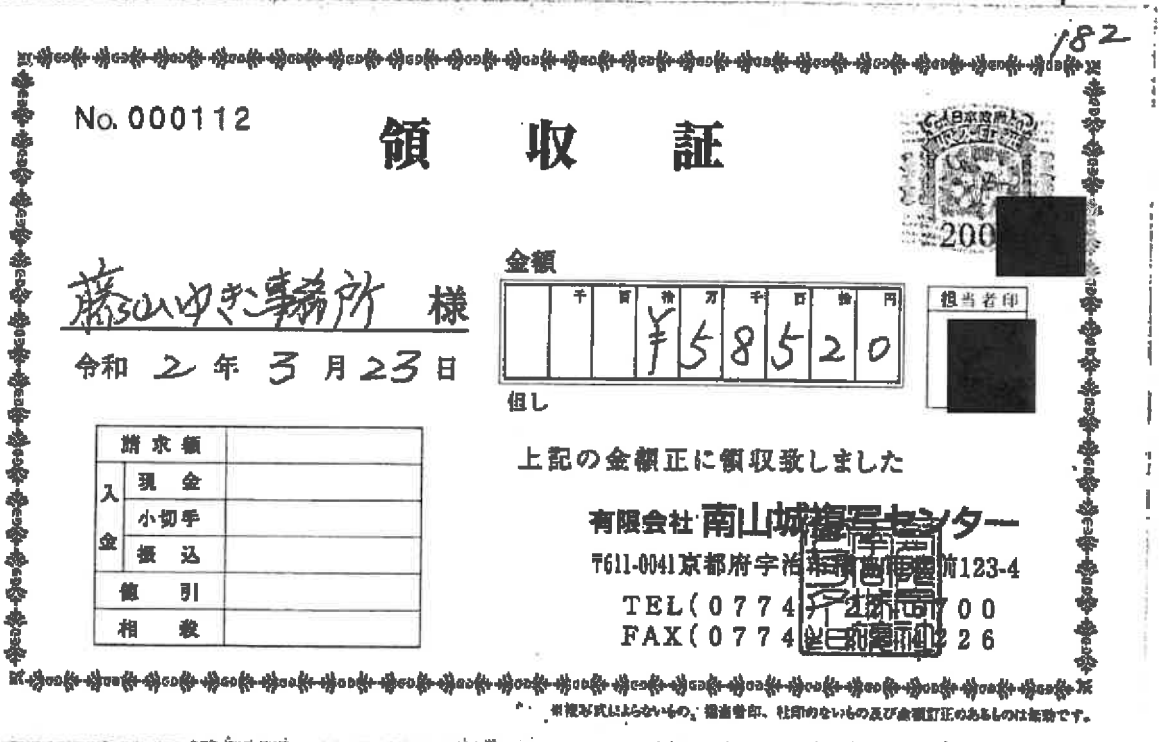 182
No. 000112
領収証
日本政府
200
藤山ゆき事務所 様
令和 2 年 3 月 23 日
金額
千 百 拾 万 千 百 拾 円
¥58520
担当者印
但し
上記の金額正に領収致しました
請求額
入金
現金
小切手
振込
値引
相殺
有限会社 南山城複写センター
〒611-0041京都府宇治市 前123-4
TEL(0774) 700
FAX(0774) 226
※複写式によらないもの、担当者印、社印のないもの及び金額訂正のあるものは無効です。